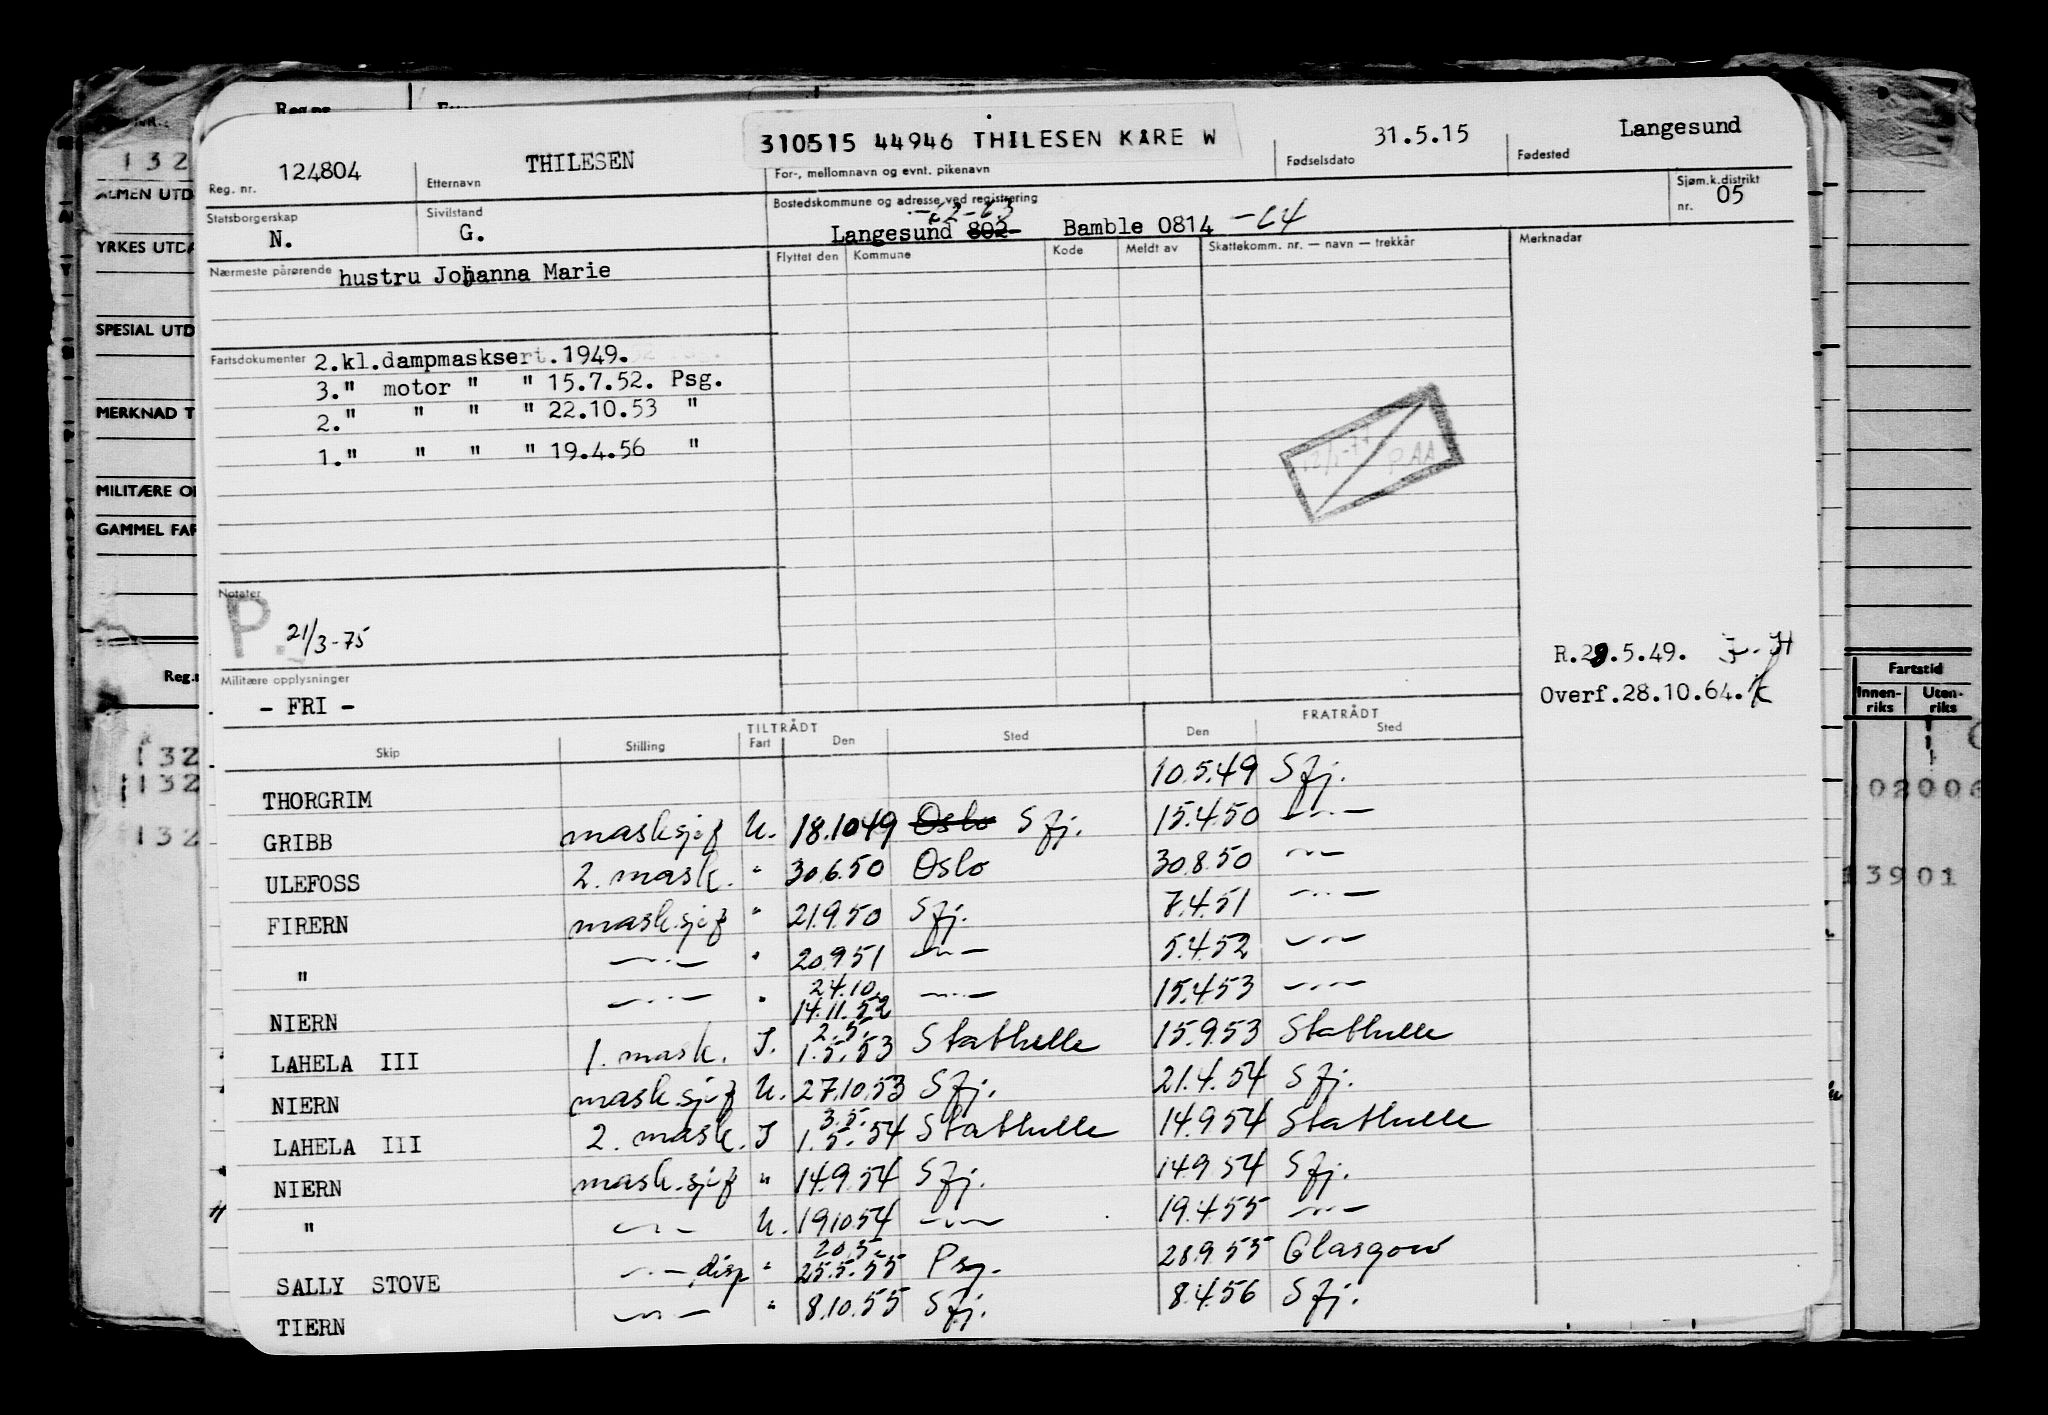 Reg. nr. 124804
Etternavn THILESEN
310515 44946 THILESEN KÅRE W
For-, mellomnavn og evnt. pikenavn
Fødselsdato 31.5.15
Fødested Langesund
Statsborgerskap N.
Sivilstand G.
Bostedskommune og adresse ved registrering
-62-63
Langesund 802 Bamble 0814 -64
Sjøm.k.distrikt nr. 05
Nærmeste pårørende hustru Johanna Marie
Flyttet den Kommune Kode Meldt av Skattekomm. nr. — navn — trekkår Merknadar
Fartsdokumenter 2.kl.dampmasksert.1949.
3." motor " " 15.7.52. Psg.
2." " " " 22.10.53 "
1." " " " 19.4.56 "
Notater
P. 21/3-75
R.28.5.49.
Militære opplysninger
- FRI -
Overf.28.10.64.
TILTRÅDT FRATRÅDT
Skip Stilling Fart Den Sted Den Sted
THORGRIM 10.5.49 Sfj.
GRIBB mask.sjef U. 18.10.49 Oslo Sfj. 15.4.50 —"—
ULEFOSS 2. mask. " 30.6.50 Oslo 30.8.50 —"—
FIRERN mask.sjef " 21.9.50 Sfj. 7.4.51 —"—
" —"— " 20.9.51 —"— 5.4.52 —"—
24.10.
NIERN —"— " 14.11.52 —"— 15.4.53 —"—
2.5.
LAHELA III 1. mask. I. 1.5.53 Stathelle 15.9.53 Stathelle
NIERN mask.sjef U. 27.10.53 Sfj. 21.4.54 Sfj.
3.5.
LAHELA III 2. mask. I 1.5.54 Stathelle 14.9.54 Stathelle
NIERN mask.sjef " 14.9.54 Sfj. 14.9.54 Sfj.
" —"— U. 19.10.54 —"— 19.4.55 —"—
20.5.
SALLY STOVE —"— disp " 25.5.55 Psg. 28.9.55 Glasgow
TIERN —"— " 8.10.55 Sfj. 8.4.56 Sfj.
Reg.nr
132
ALMEN UTD
YRKES UTDA
SPESIAL UTD
MERKNAD T
MILITÆRE O
GAMMEL FAR
132
132
132
Fartstid
Innen-riks Uten-riks
02006
13901